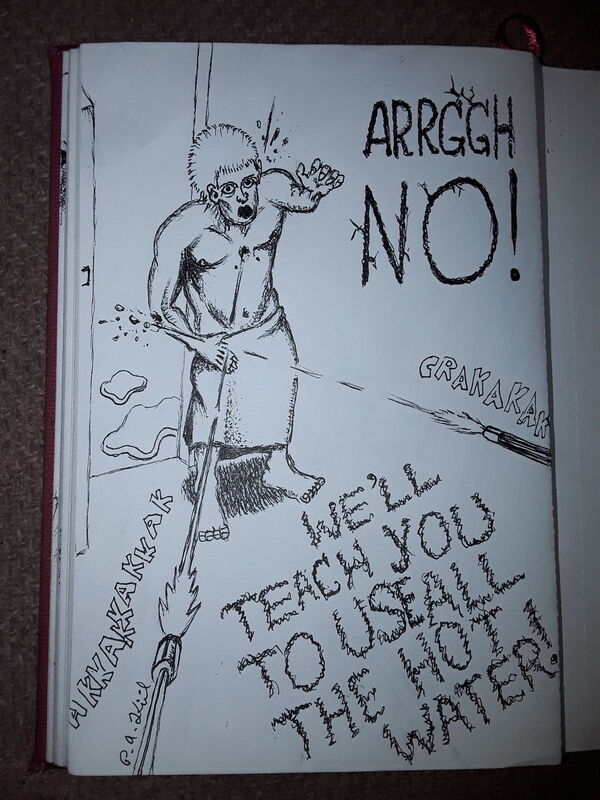 ARRGGH
NO!
GRAKAKAK
WE'LL
TEACH YOU
TO USE ALL
THE HOT
WATER!